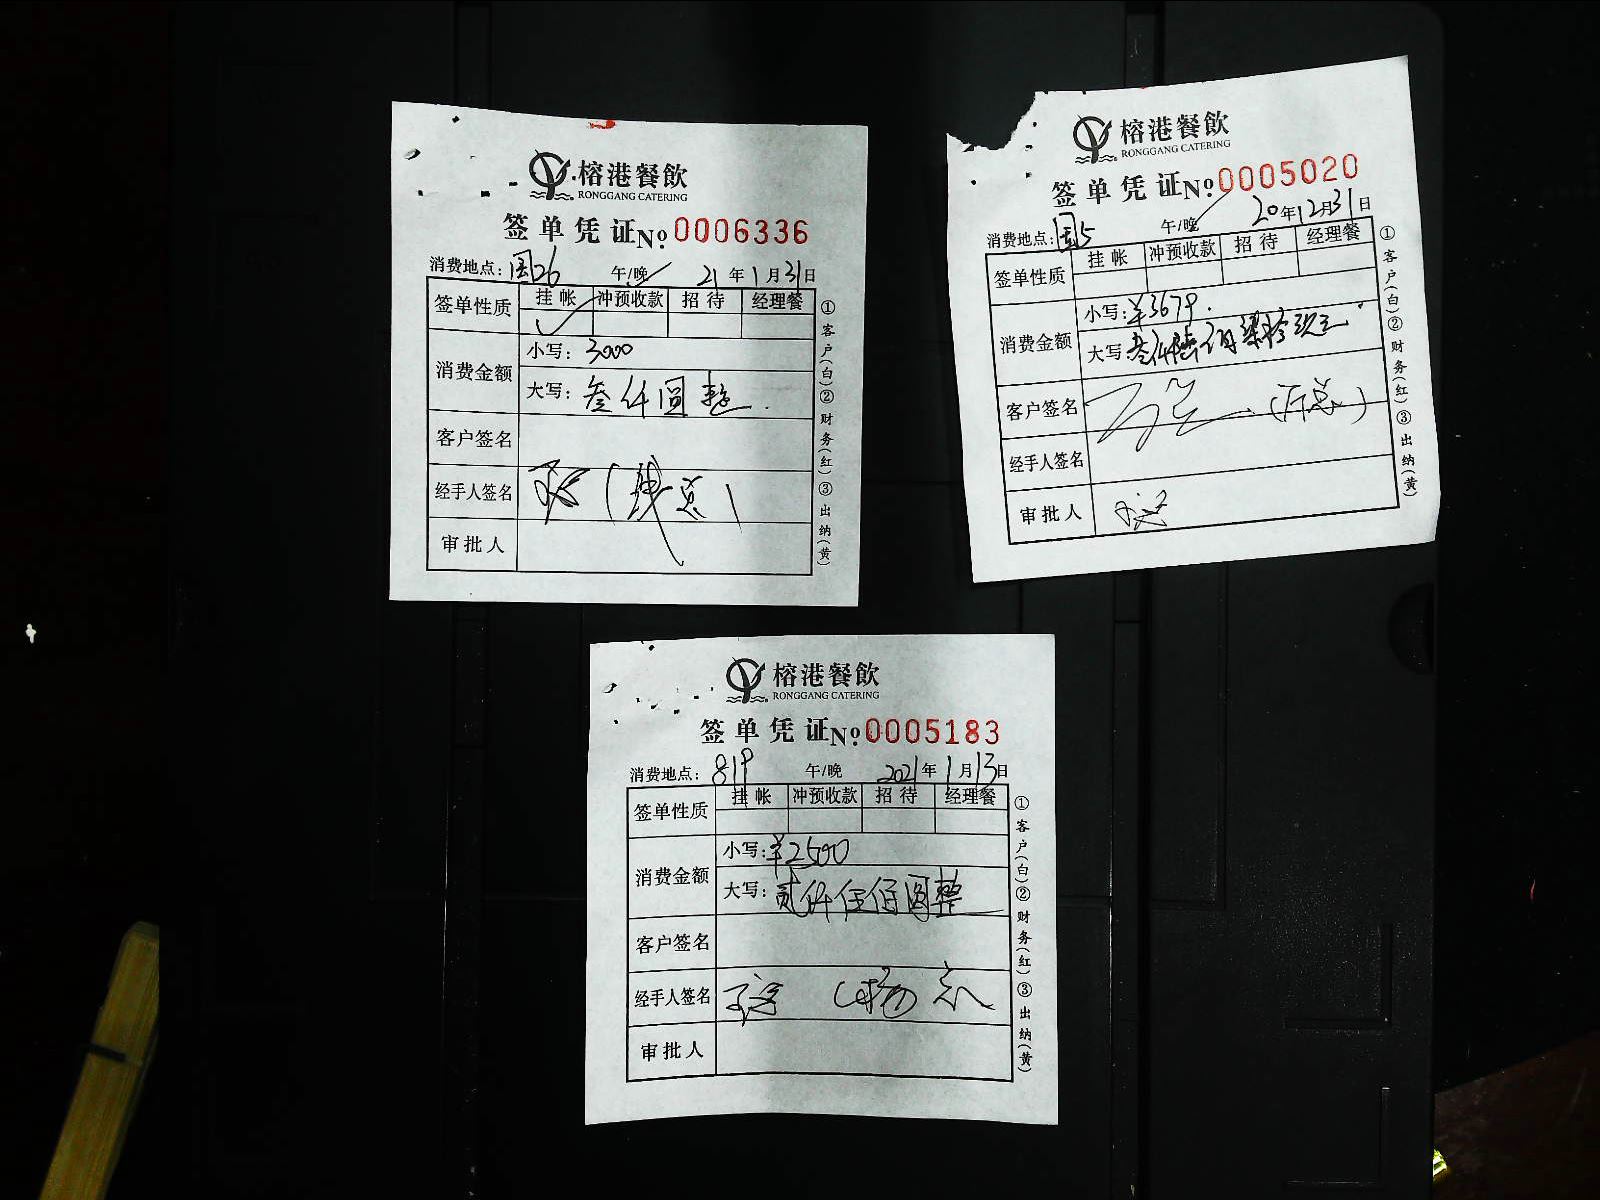 榕港餐飲
RONGGANG CATERING
签单凭证№0006336
消费地点:国26 午/晚 21年1月31日
签单性质 挂帐 冲预收款 招待 经理餐
消费金额
小写:3000
大写:叁仟圆整
客户签名
经手人签名
审批人
①客户(白)②财务(红)③出纳(黄)
榕港餐飲
RONGGANG CATERING
签单凭证№0005020
消费地点:国5 午/晚 20年12月31日
签单性质 挂帐 冲预收款 招待 经理餐
消费金额
小写:¥3679.
大写:叁仟陆佰柒拾玖元
客户签名
经手人签名
审批人
①客户(白)②财务(红)③出纳(黄)
榕港餐飲
RONGGANG CATERING
签单凭证№0005183
消费地点:819 午/晚 2021年1月13日
签单性质 挂帐 冲预收款 招待 经理餐
消费金额
小写:¥2500
大写:贰仟伍佰圆整
客户签名
经手人签名
审批人
①客户(白)②财务(红)③出纳(黄)